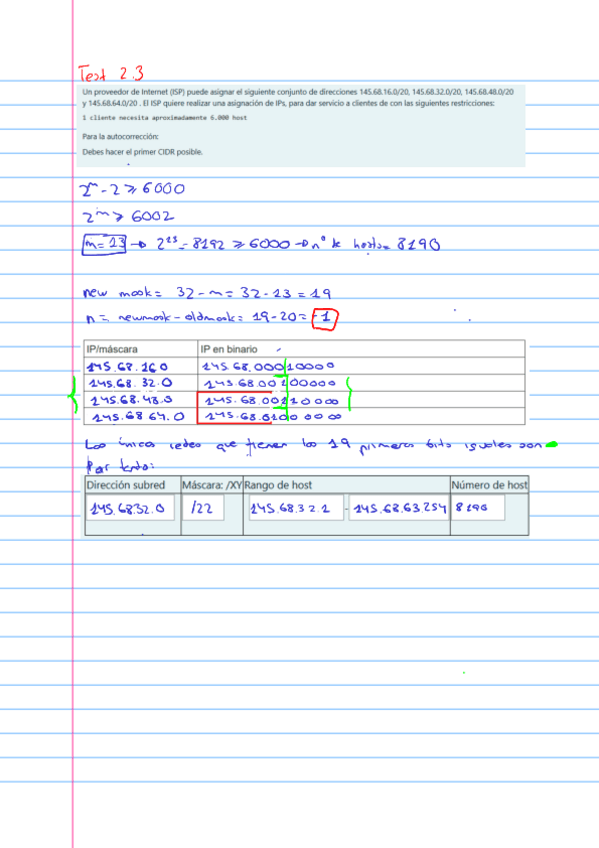 Test 2.3
Un proveedor de Internet (ISP) puede asignar el siguiente conjunto de direcciones 145.68.16.0/20, 145.68.32.0/20, 145.68.48.0/20
y 145.68.64.0/20 . El ISP quiere realizar una asignación de IPs, para dar servicio a clientes de con las siguientes restricciones:
1 cliente necesita aproximadamente 6.000 host
Para la autocorrección:
Debes hacer el primer CIDR posible.
2^m - 2 ≥ 6000
2^m ≥ 6002
m = 13 → 2^13 = 8192 ≥ 6000 → nº de hosts = 8190
new mask = 32 - m = 32 - 13 = 19
n = newmask - oldmask = 19 - 20 = -1
IP/máscara IP en binario
145.68.16.0 145.68.00010000
145.68.32.0 145.68.00100000
145.68.48.0 145.68.00110000
145.68 64.0 145.68.01000000
Las únicas redes que tienen los 19 primeros bits iguales son
Por tanto:
Dirección subred Máscara: /XY Rango de host Número de host
145.6832.0 /22 145.68.32.1 - 145.68.63.254 8190